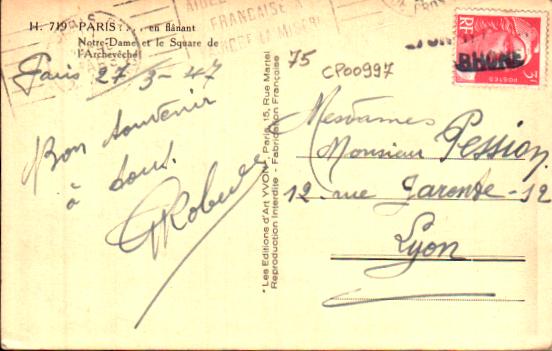 H. 719 PARIS ... en flânant
Notre-Dame et le Square de
l'Archevêché
Paris 27-3-47
Bon souvenir
à tous.
FRANÇAISE
75
CP00997
RHONE
RF
POSTES
3F
" Les Editions d'Art YVON ", Paris, 15, Rue Martel
Reproduction Interdite - Fabrication Française
Mesdames
Monsieur Pession
12, rue Jarente - 12
Lyon